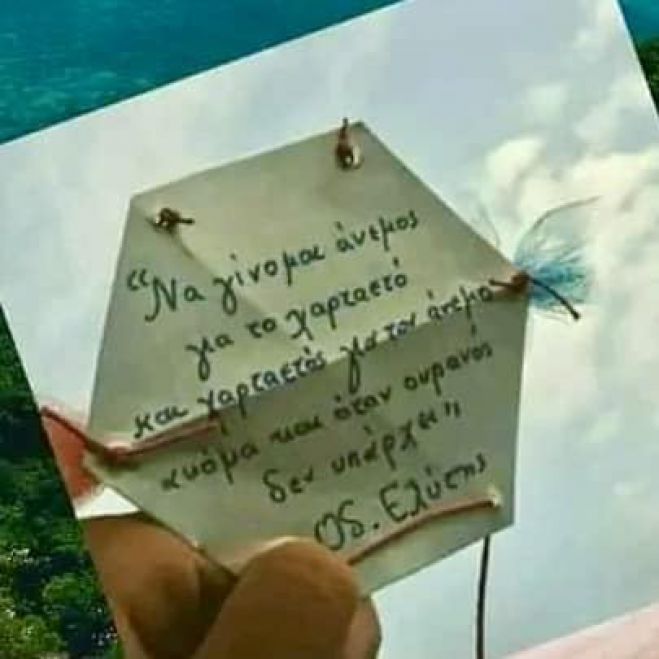 “Να γίνομαι άνεμος
για το χαρταετό
και χαρταετός για τον άνεμο
ακόμα και όταν ουρανός
δεν υπάρχει”
Οδ. Ελύτης